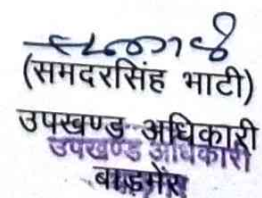 (समदरसिंह भाटी)
उपखण्ड अधिकारी
उपखण्ड अधिकारी
बाड़मेर